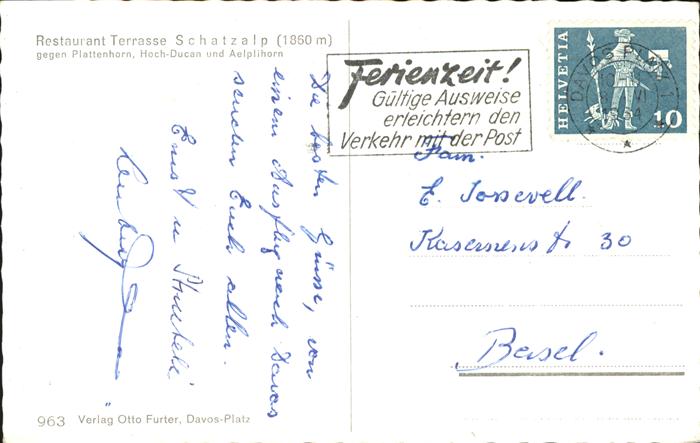 Restaurant Terrasse Schatzalp (1860 m)
gegen Plattenhorn, Hoch-Ducan und Aelplihorn
Ferienzeit!
Gültige Ausweise
erleichtern den
Verkehr mit der Post
HELVETIA
10
DAVOS PLATZ 1
Die besten Grüsse, von
einem Ausflug nach Davos
senden Euch allen.
Ernst u
Fam.
E. Josevell.
Kasernenstr 30
Basel.
963 Verlag Otto Furter, Davos-Platz